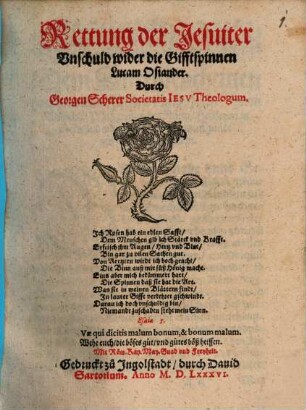 Rettung der Jesuiter
Vnschuld wider die Gifftspinnen
Lucam Osiander.
Durch
Georgen Scherer Societatis IESV Theologum.
Ich Rosen hab ein edlen Safft/
Dem Menschen gib ich Stärck vnd Krafft.
Erfrisch jhm Augen/ Hertz vnd Blut/
Bin gar zu vilen Sachen gut.
Von Aertzten wirdt ich hoch geacht/
Die Binn auß mir süß Hönig macht.
Eins aber mich bekümmert hart/
Die Spinnen daß sie hat die Art.
Was sie in meinen Blättern findt/
In lauter Gifft verkehret gschwindt.
Daran ich doch vnschuldig bin/
Niemandt zuschaden steht mein Sinn.
Esaiæ 5.
Væ qui dicitis malum bonum, & bonum malum.
Wehe euch/ die böses gut/ vnd gutes böß heissen.
Mit Röm. Kay. May. Gnad vnd Freyheit.
Gedruckt zu Ingolstadt/ durch Dauid
Sartorium. Anno M. D. LXXXVI.